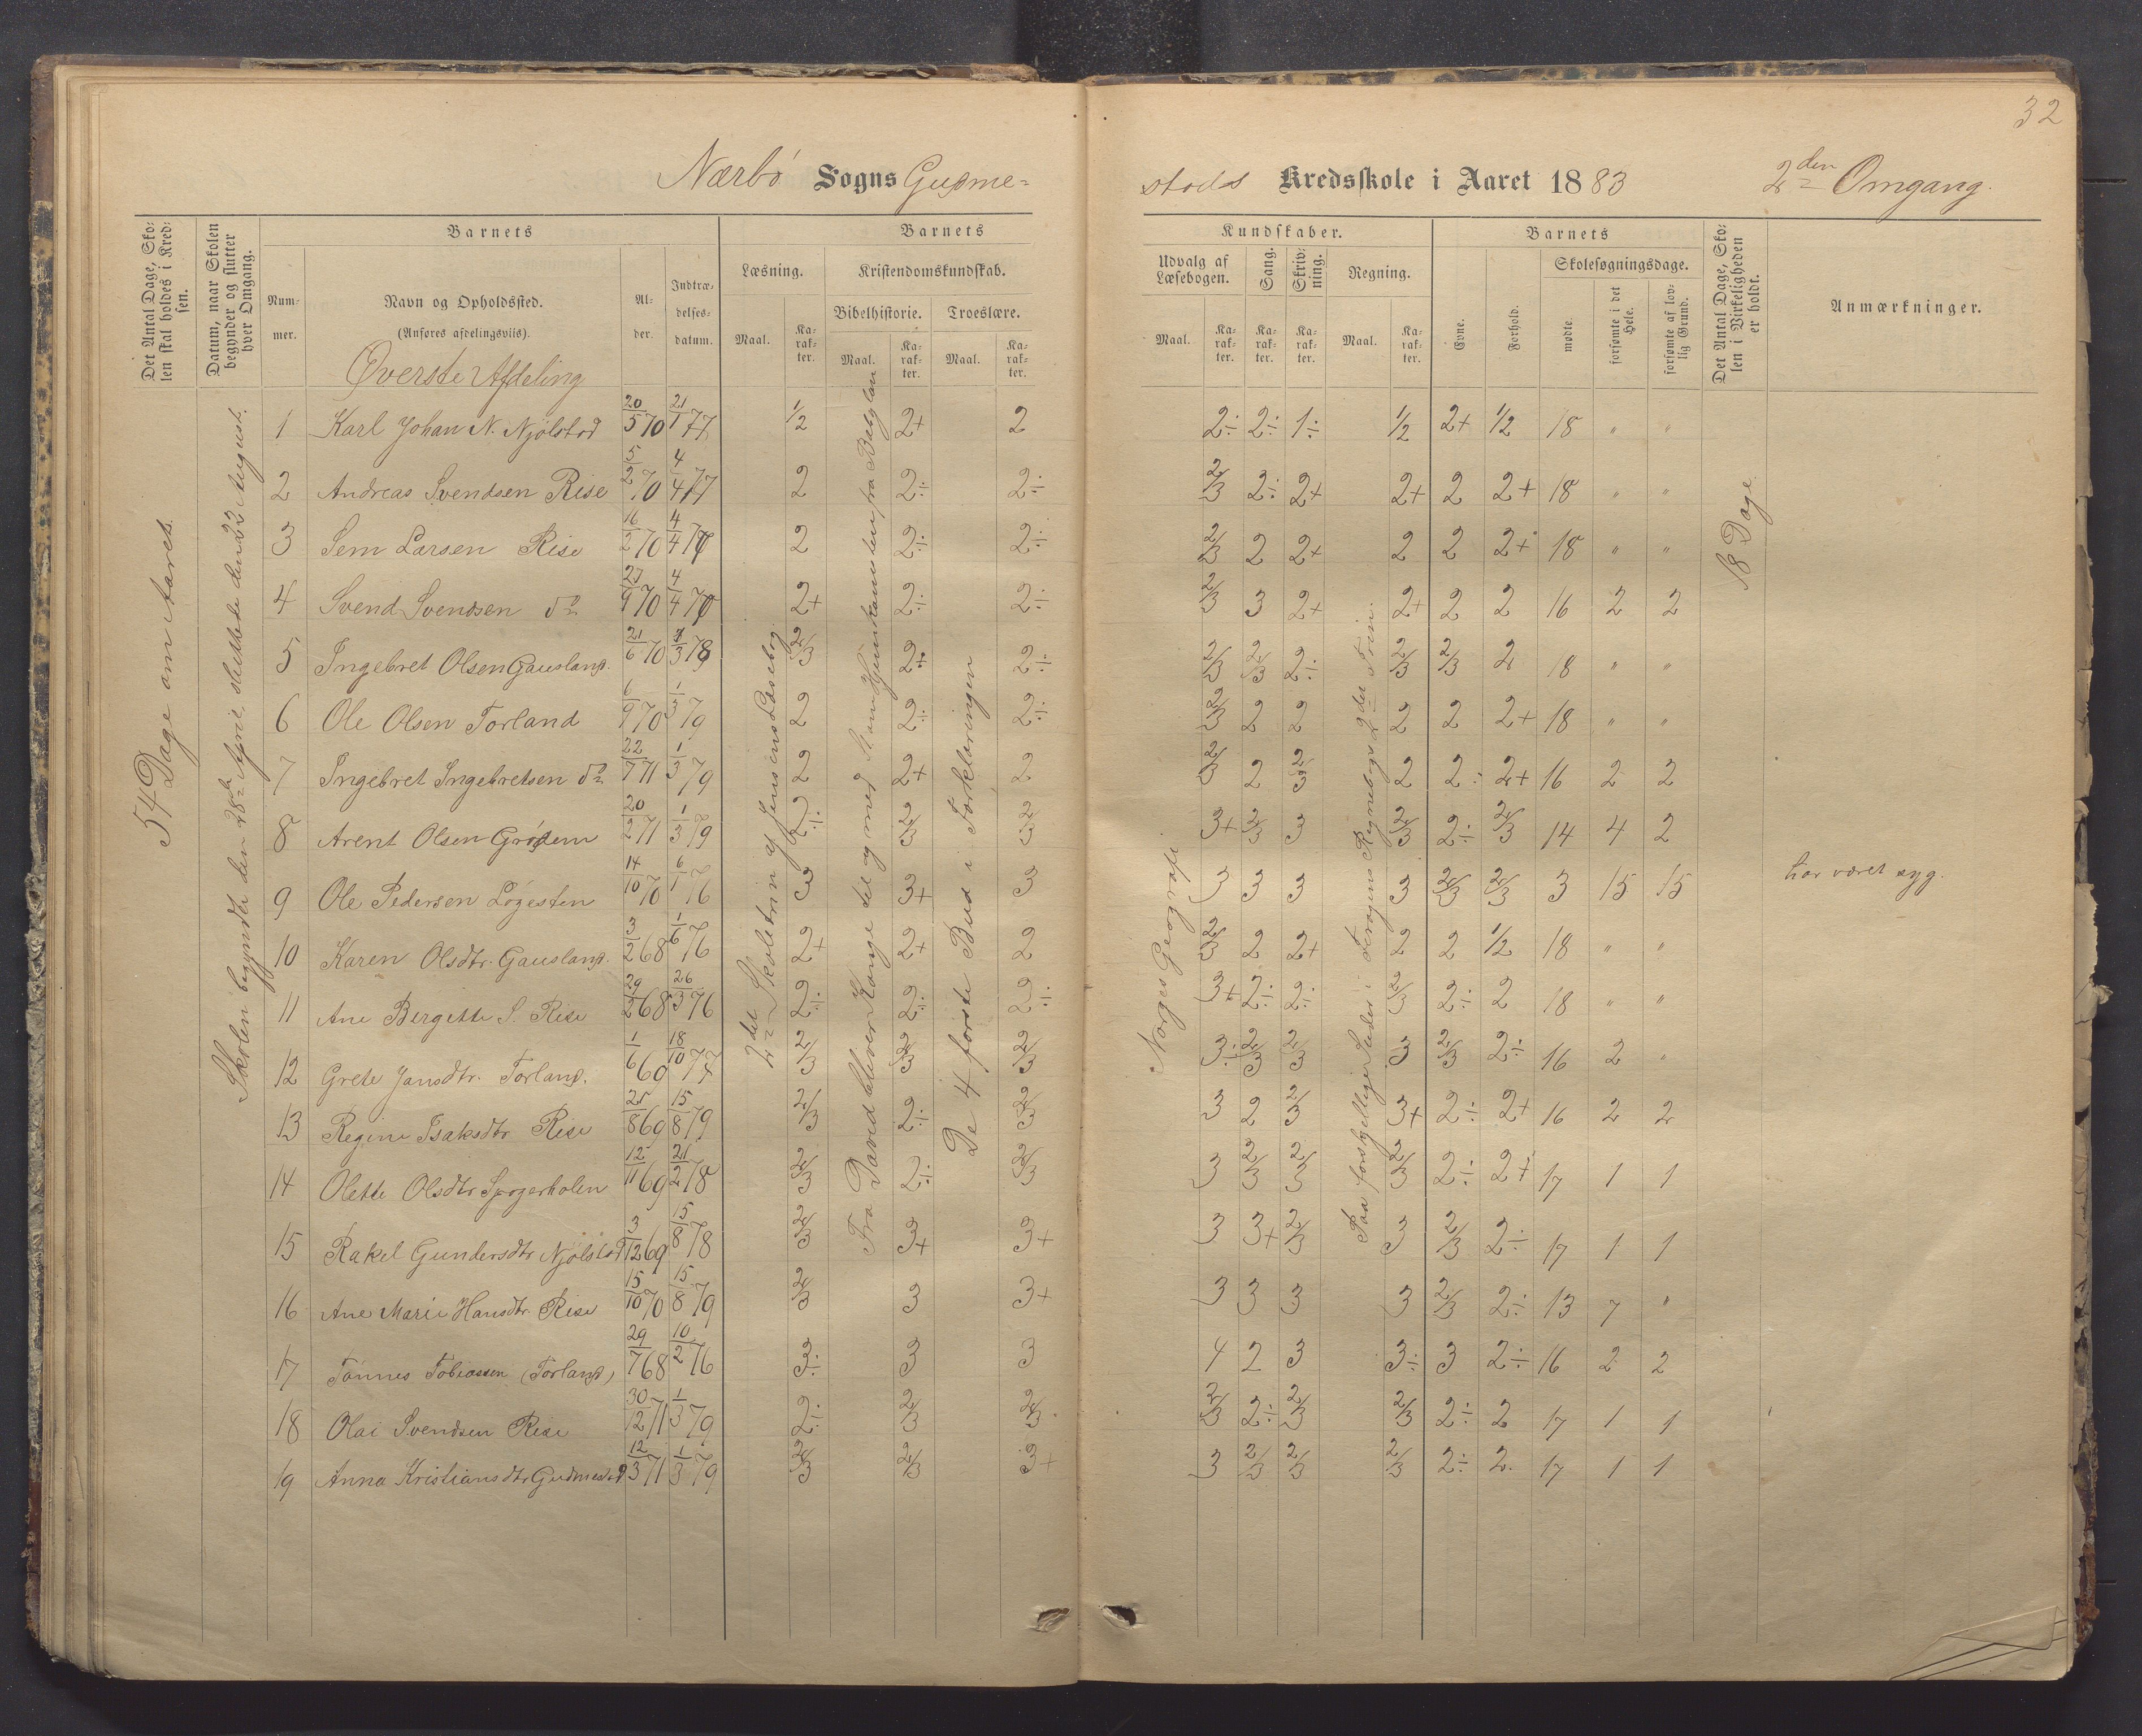 32
Nærbø Sogns Gudme-
stads Kredsskole i Aaret 1883 2den Omgang.
Det Antal Dage, Sko-
len skal holdes i Kred-
sen.
Datum, naar Skolen
begynder og slutter
hver Omgang.
Barnets
Num-
mer.
Navn og Opholdssted.
(Anføres afdelingsviis).
Al-
der.
Indtræ-
delses-
datum.
Barnets
Læsning.
Kristendomskundskab.
Bibelhistorie. Troeslære.
Maal. Ka-
rak-
ter.
Maal. Ka-
rak-
ter.
Maal. Ka-
rak-
ter.
Kundskaber.
Udvalg af
Læsebogen.
Sang.
Skriv-
ning.
Regning.
Maal. Ka-
rak-
ter.
Ka-
rak-
ter.
Ka-
rak-
ter.
Maal. Ka-
rak-
ter.
Barnets
Evne.
Forhold.
Skolesøgningsdage.
mødte.
forsømte i det
Hele.
forsømte af lov-
lig Grund.
Det Antal Dage, Sko-
len i Virkeligheden
er holdt.
Anmærkninger.
Øverste Afdeling
54 Dage om Aaret.
Skolen begyndte den 28de April, sluttede den 22 August.
2det Skoletrin af Jensens Læsebog
Fra David bliver Konge til og med Hjemkomsten fra Babylon
De 4 første Bud i Forklaringen
Norges Geografi
Paa forskjellige Steder i Regnebogs 2det Trin.
18 Dage
1 Karl Johan N. Njølstad 20/5 70 21/1 77 1/2 2+ 2 2÷ 2÷ 1÷ 1/2 2+ 1/2 18 " "
2 Andreas Svendsen Rise 5/2 70 4/4 77 2 2÷ 2÷ 2/3 2÷ 2+ 2+ 2 2+ 18 " "
3 Sem Larsen Rise 16/2 70 4/4 77 2 2÷ 2÷ 2/3 2 2+ 2 2 2+ 18 " "
4 Svend Svendsen do 4/4 2+ 2÷ 2÷ 2/3 3 2+ 2+ 2 2 16 2 2
5 Ingebret Olsen Gausland. 21/6 70 78 2/3 2+ 2÷ 2/3 2/3 2÷ 2/3 2/3 2 18 " "
6 Ole Olsen Torland 6/9 70 1/3 79 2 2÷ 2÷ 2/3 2 2 2 2 2+ 18 " "
7 Ingebret Ingebretsen do 71 1/3 79 2 2+ 2 2/3 2 2/3 2 2÷ 2+ 16 2 2
8 Arent Olsen Grødem 20/2 71 1/3 79 2÷ 2/3 2/3 3+ 2/3 3 2/3 2÷ 2/3 14 4 2
9 Ole Pedersen Løgesten 14/10 70 6/1 76 3 3+ 3 3 3 3 3 2/3 2/3 3 15 15 har været syg.
10 Karen Olsdtr. Gausland. 3/2 68 1/6 76 2+ 2+ 2 2/3 2 2+ 2 2 1/2 18 " "
11 Ane Bergitte S. Rise 29/2 68 26/3 76 2÷ 2÷ 2÷ 3+ 2÷ 2÷ 2/3 2÷ 2 18 " "
12 Grete Jansdtr. Torland. 1/6 69 18/10 77 2/3 2/3 2/3 3÷ 2/3 2/3 3 2/3 2÷ 16 2 "
13 Regine Isaksdtr Rise 25/8 69 15/8 79 2/3 2÷ 2/3 3 2 2/3 3+ 2÷ 2+ 16 2 2
14 Olette Olsdtr 12/11 69 21/2 78 2/3 2÷ 2/3 3 2/3 2/3 2/3 2÷ 2+ 17 1 1
15 Rakel Gundersdtr Njølstad 3/12 69 15/8 78 2/3 3+ 3+ 3 3+ 2/3 3 2/3 2÷ 17 1 1
16 Ane Marie Hansdtr. Rise 15/10 70 15/8 79 2/3 3 3+ 3 3 3 3 2/3 2÷ 13 7 "
17 Tønnes Tobiassen (Torland) 29/7 68 10/2 76 3÷ 3 3 4 2 3 3÷ 3 2÷ 16 2 2
18 Olai Svendsen Rise 30/12 71 1/3 79 2÷ 2/3 2/3 2/3 2÷ 2/3 2/3 2÷ 2 17 1 1
19 Anna Kristiansdtr Gudmestad 12/3 71 1/3 79 2/3 2/3 3+ 3 2/3 2/3 2/3 2÷ 2 17 1 1